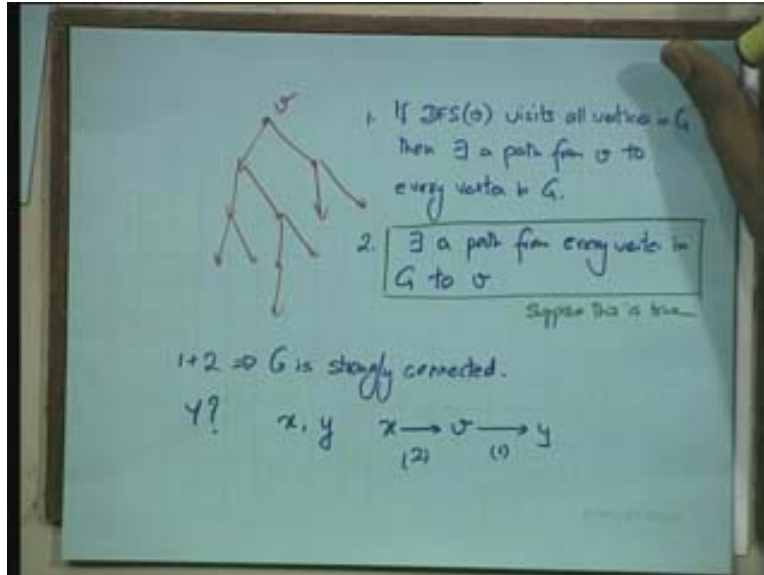 v
1. If DFS(v) visits all vertices in G
then ∃ a path from v to
every vertex in G.
2. ∃ a path from every vertex in
G to v
Suppose this is true
1+2 ⇒ G is strongly connected.
Y? x, y x → v → y
(2) (1)